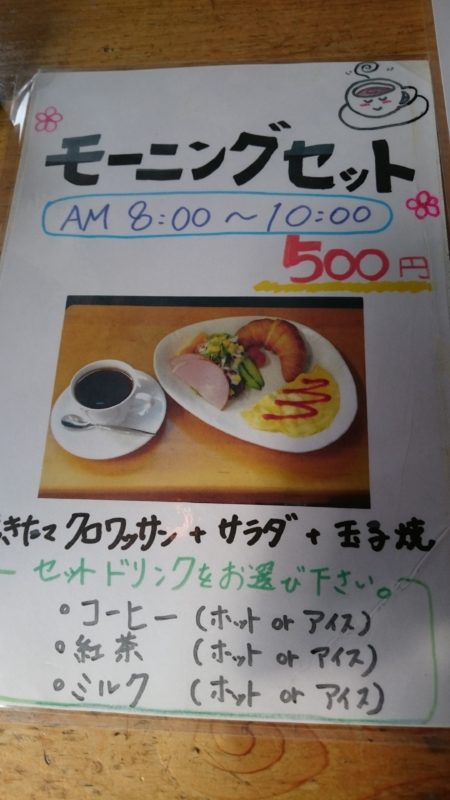 モーニングセット
AM 8:00 ～ 10:00
500円
きたて クロワッサン + サラダ + 玉子焼
セットドリンクをお選び下さい。
• コーヒー (ホット or アイス)
• 紅茶 (ホット or アイス)
• ミルク (ホット or アイス)